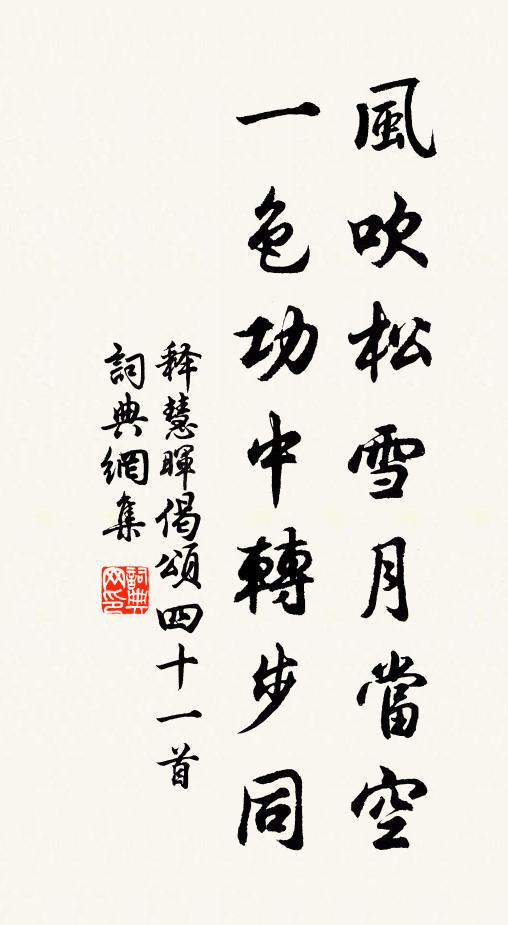 風吹松雪月當空
一色功中轉步同
释慧暉偈頌四十一首
詞典網集
詞典网印